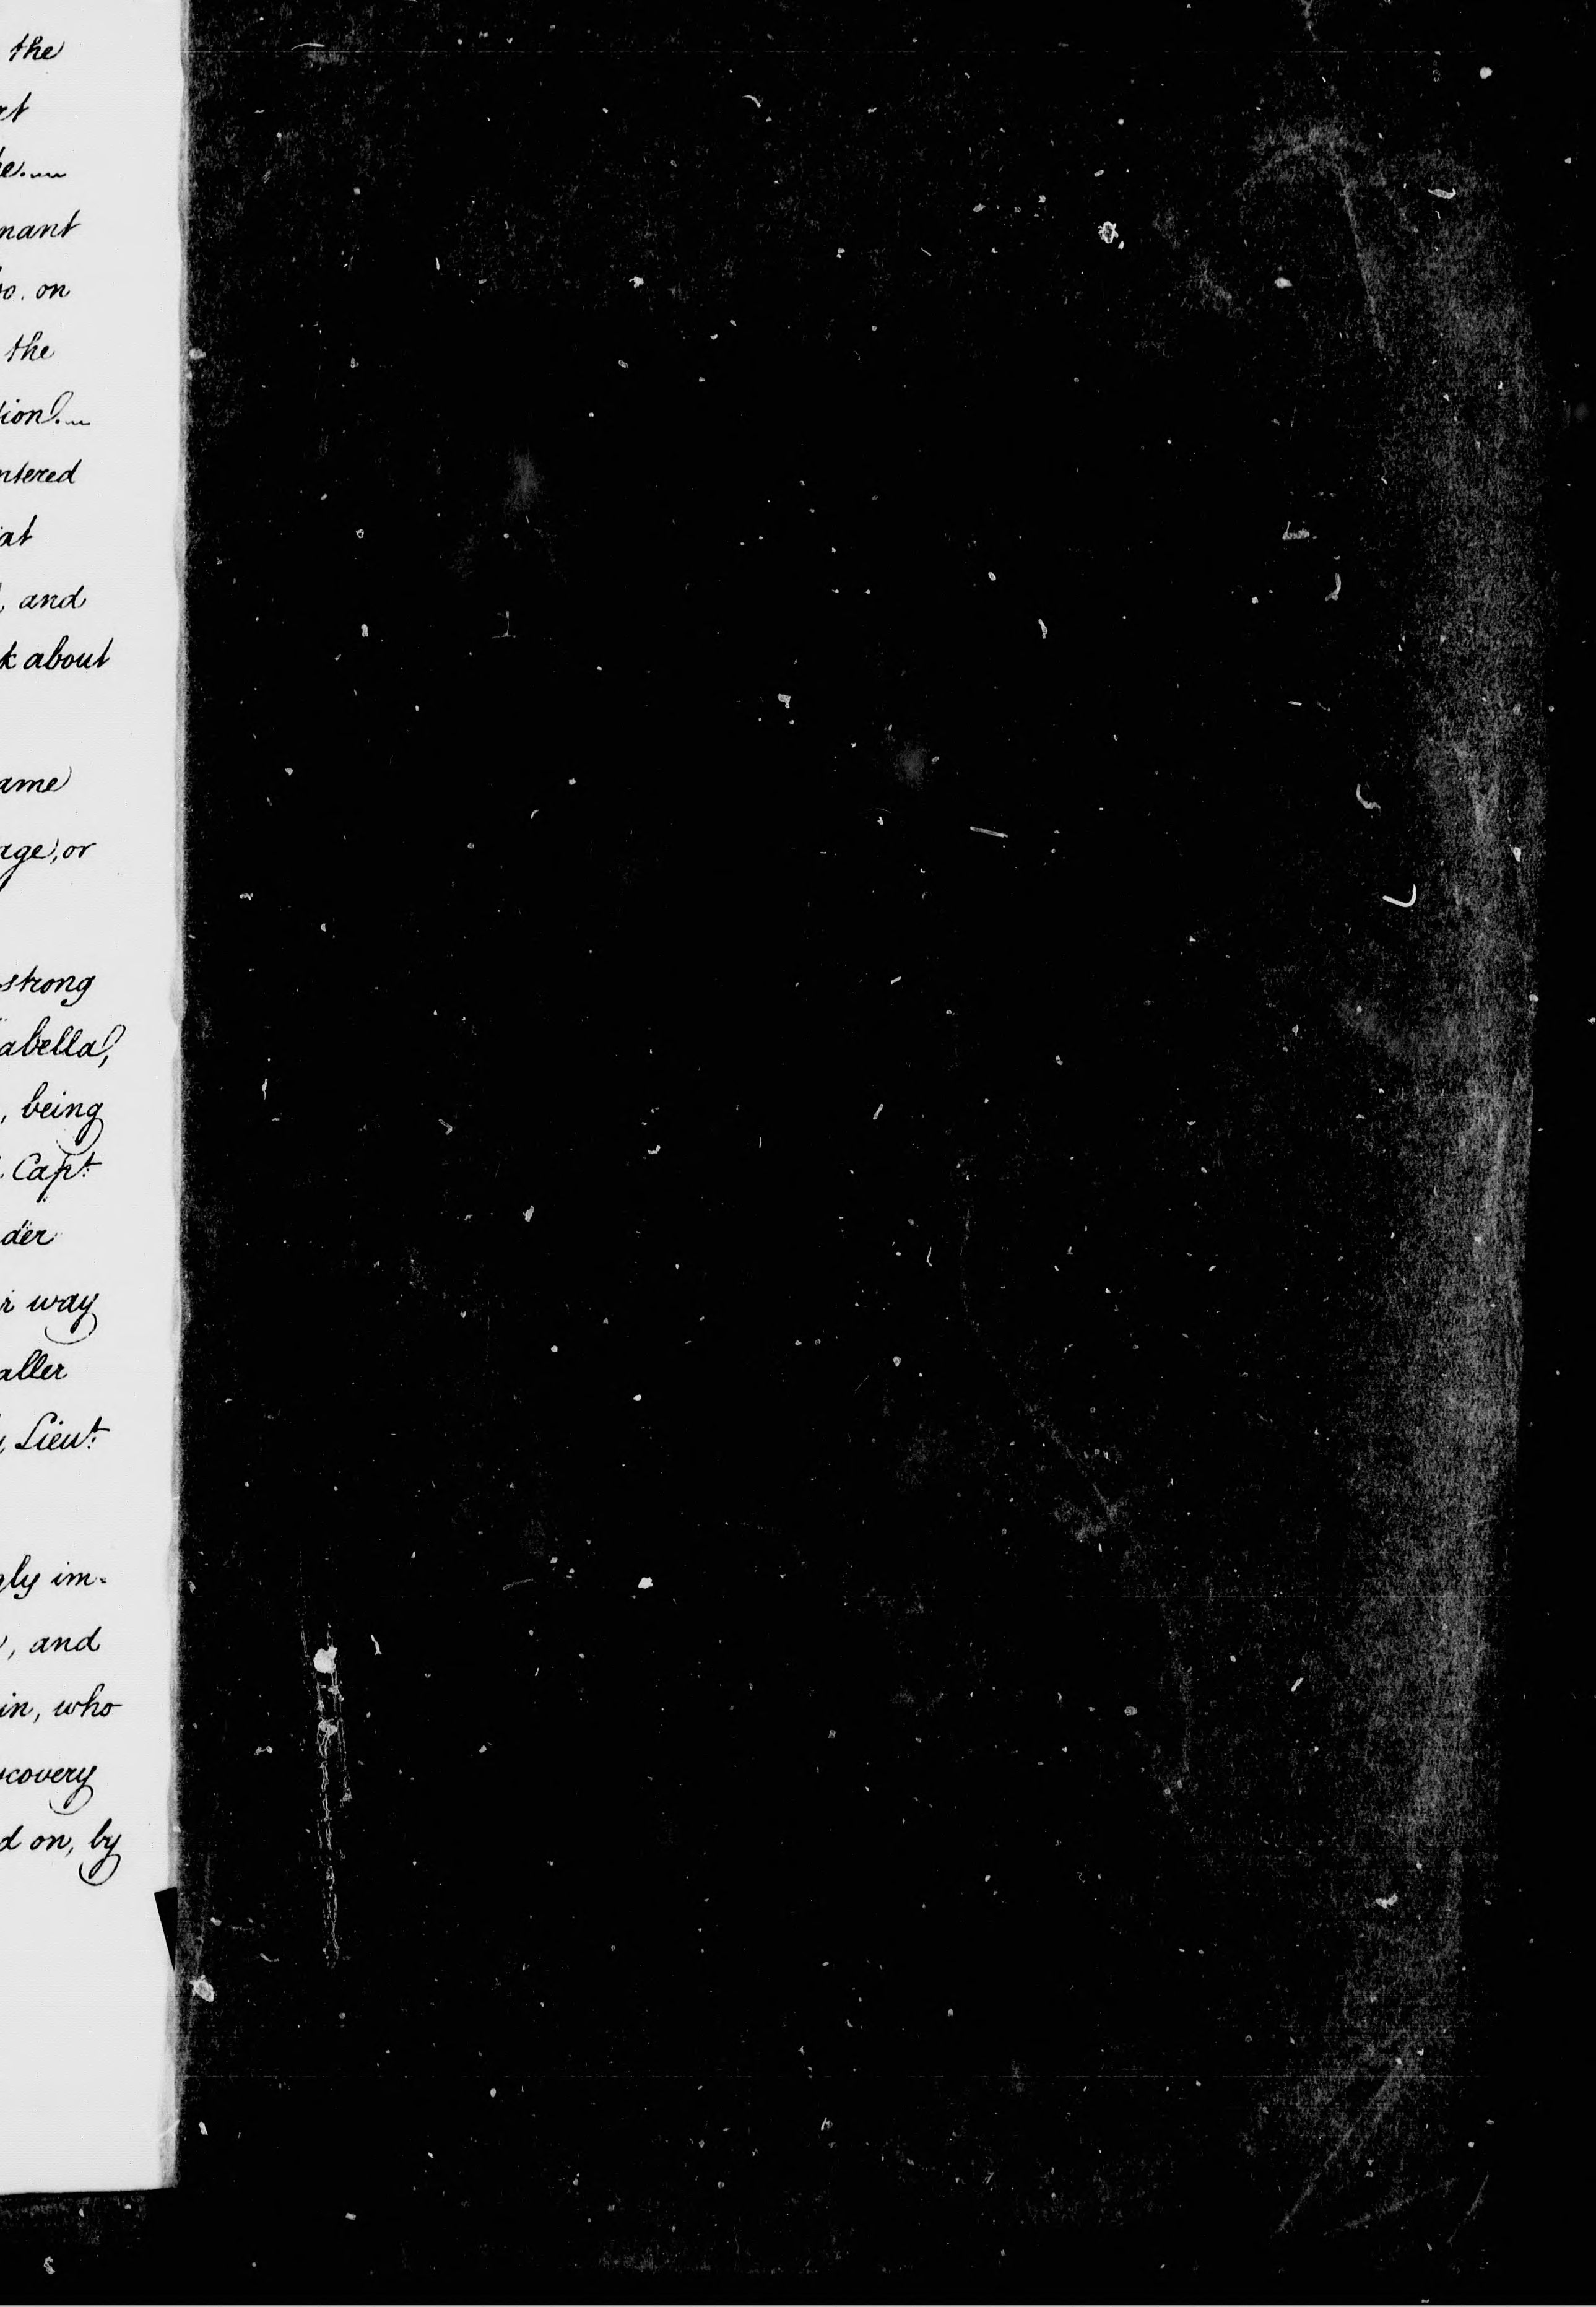 the
rt
he.
nant
so. on
the
tion.
ntered
at
, and
k about
ame
age, or
strong
abella,
, being
Capt.
der
r way
aller
Lieut.
gly im-
, and
in, who
scovery
d on, by